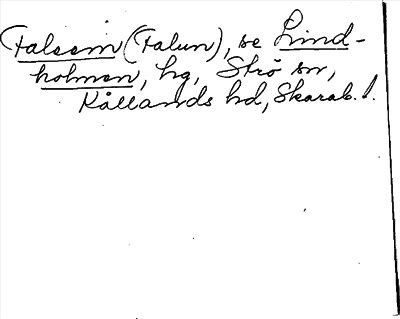 Falsem (Falun), se Lind-
holmen, hg, Strö sn,
Kållands hd, Skarab. l.